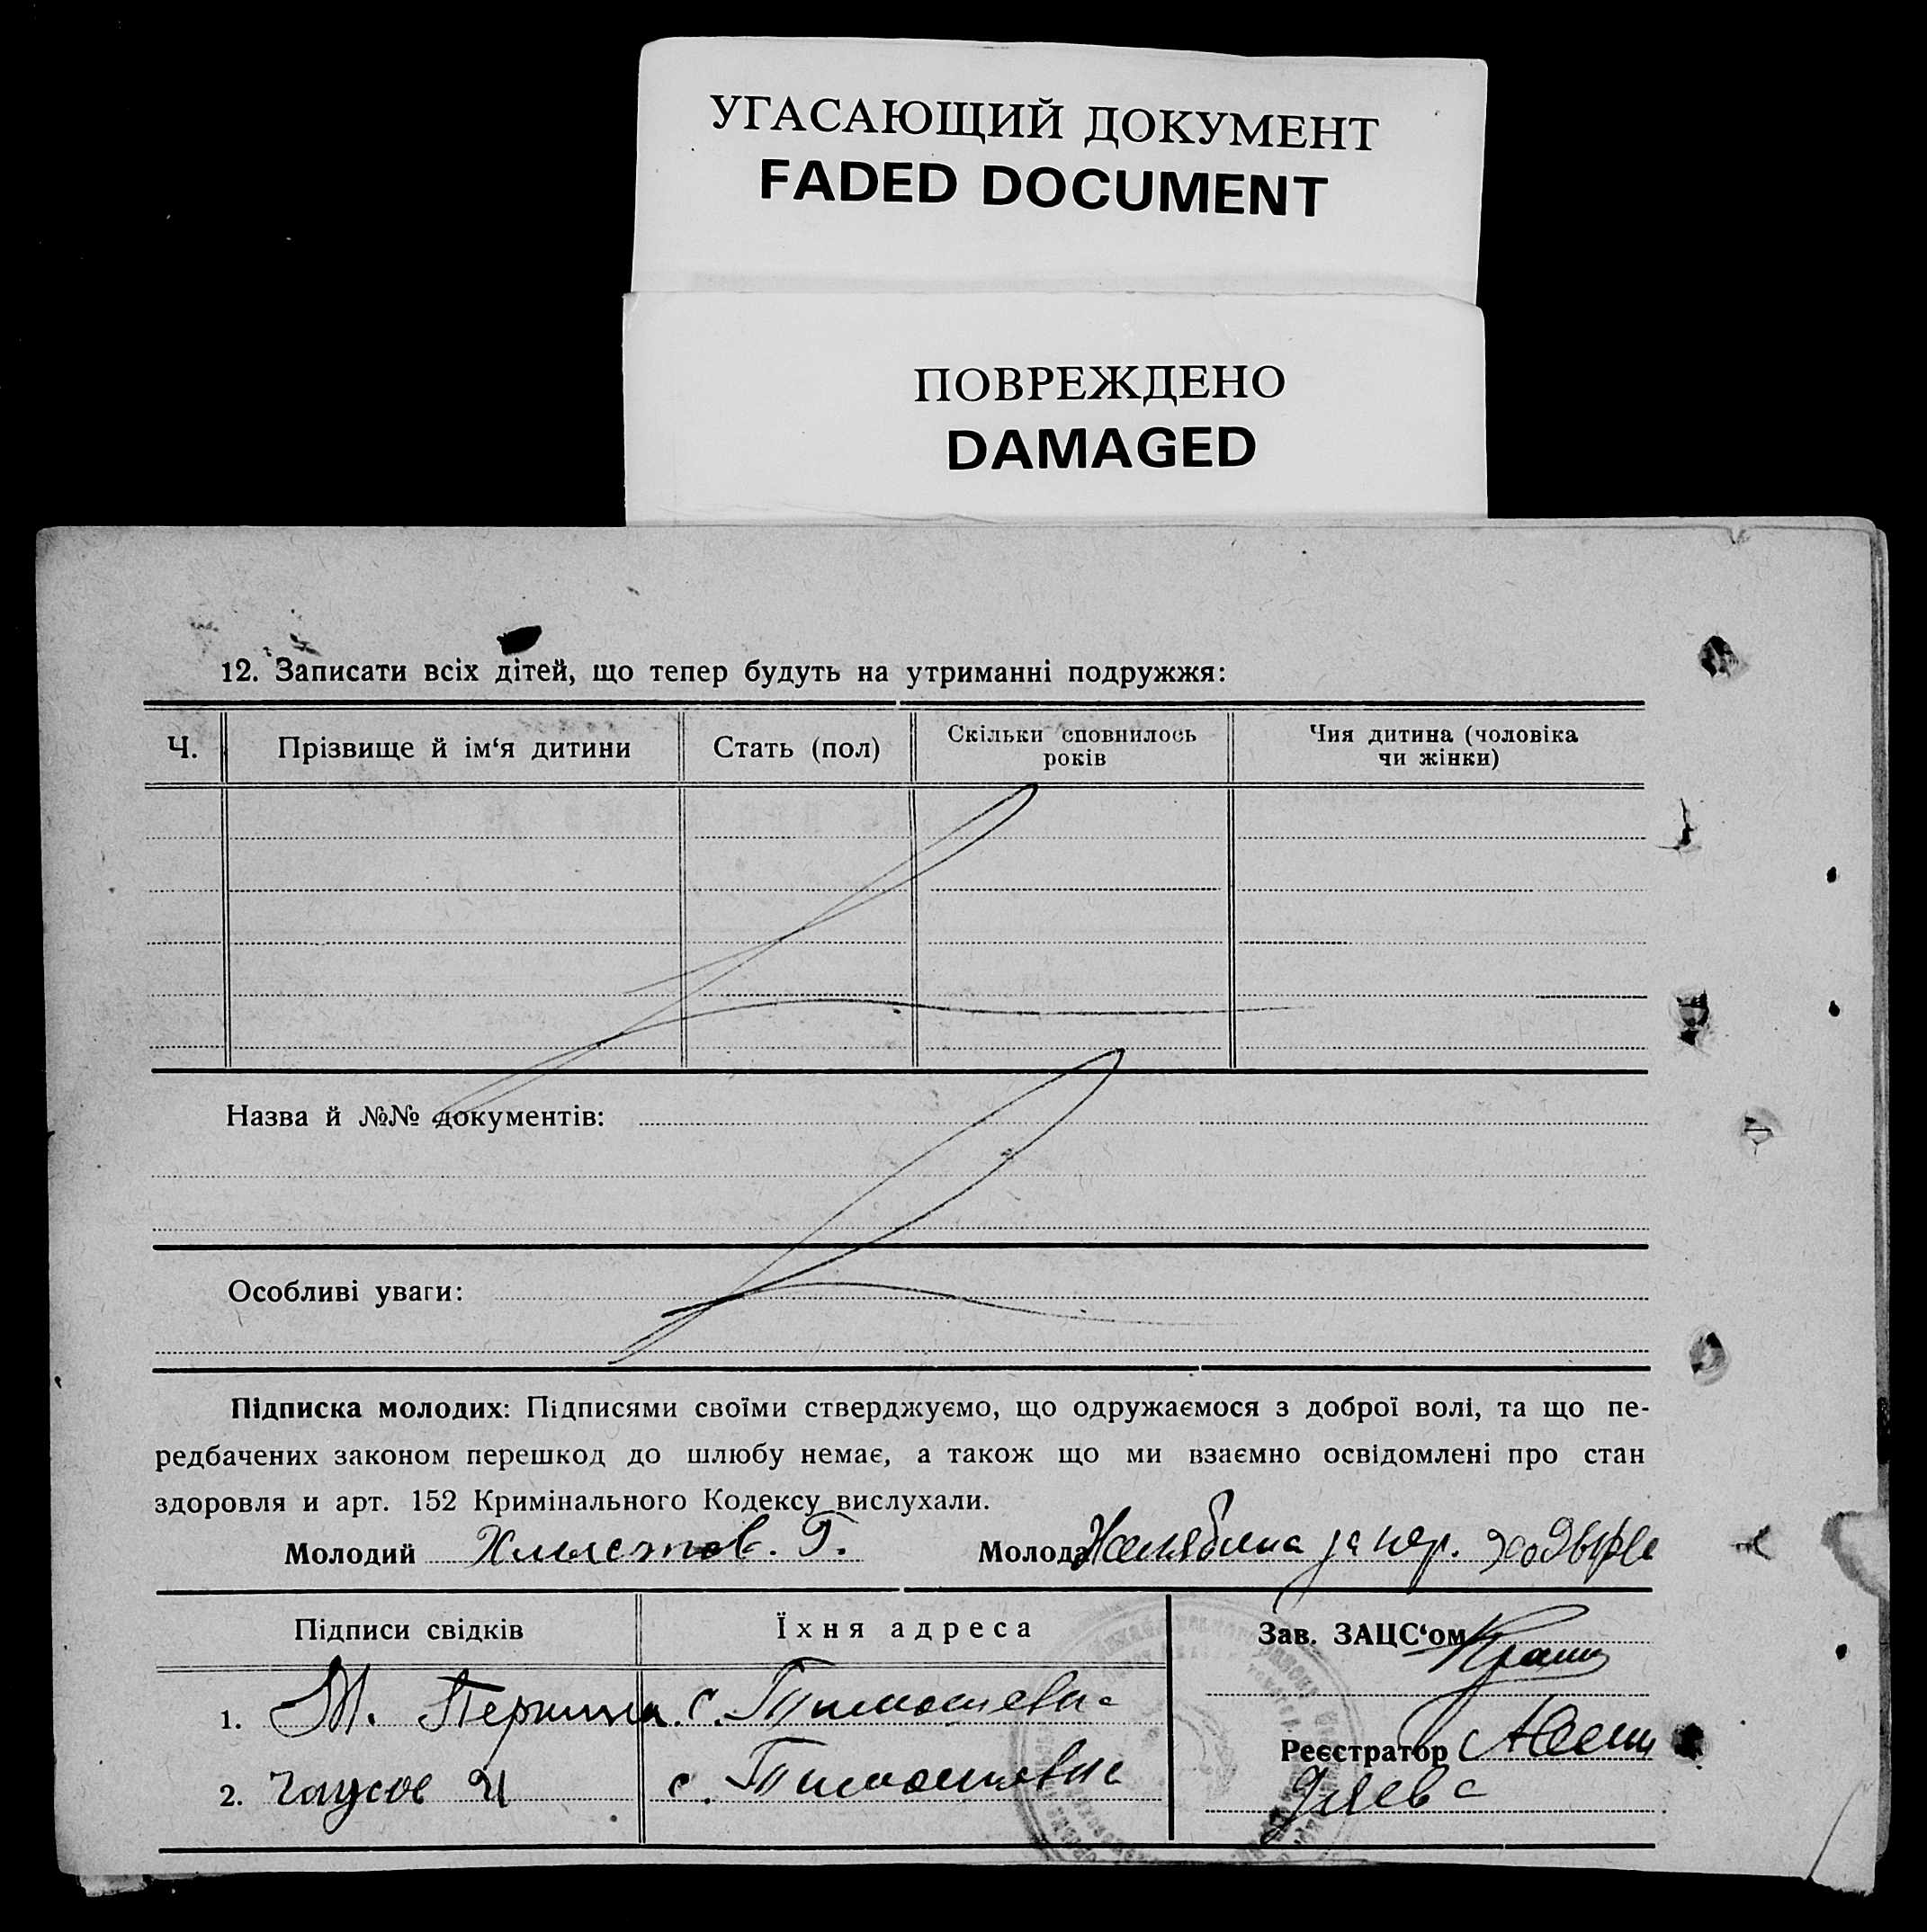 УГАСАЮЩИЙ ДОКУМЕНТ
FADED DOCUMENT
ПОВРЕЖДЕНО
DAMAGED
12. Записати всіх дітей, що тепер будуть на утриманні подружжя:
Ч.
Прізвище й ім‘я дитини
Стать (пол)
Скільки сповнилось
років
Чия дитина (чоловіка
чи жінки)
Назва й №№ документів:
Особливі уваги:
Підписка молодих: Підписями своїми стверджуємо, що одружаємося з доброї волі, та що пе-
редбачених законом перешкод до шлюбу немає, а також що ми взаємно освідомлені про стан
здоровля и арт. 152 Кримінального Кодексу вислухали.
Молодий Хлыстов. Г. Молода за нер.
Підписи свідків
Їхня адреса
Зав. ЗАЦС‘ом
1. М. с.
2. с.
Реєстратор